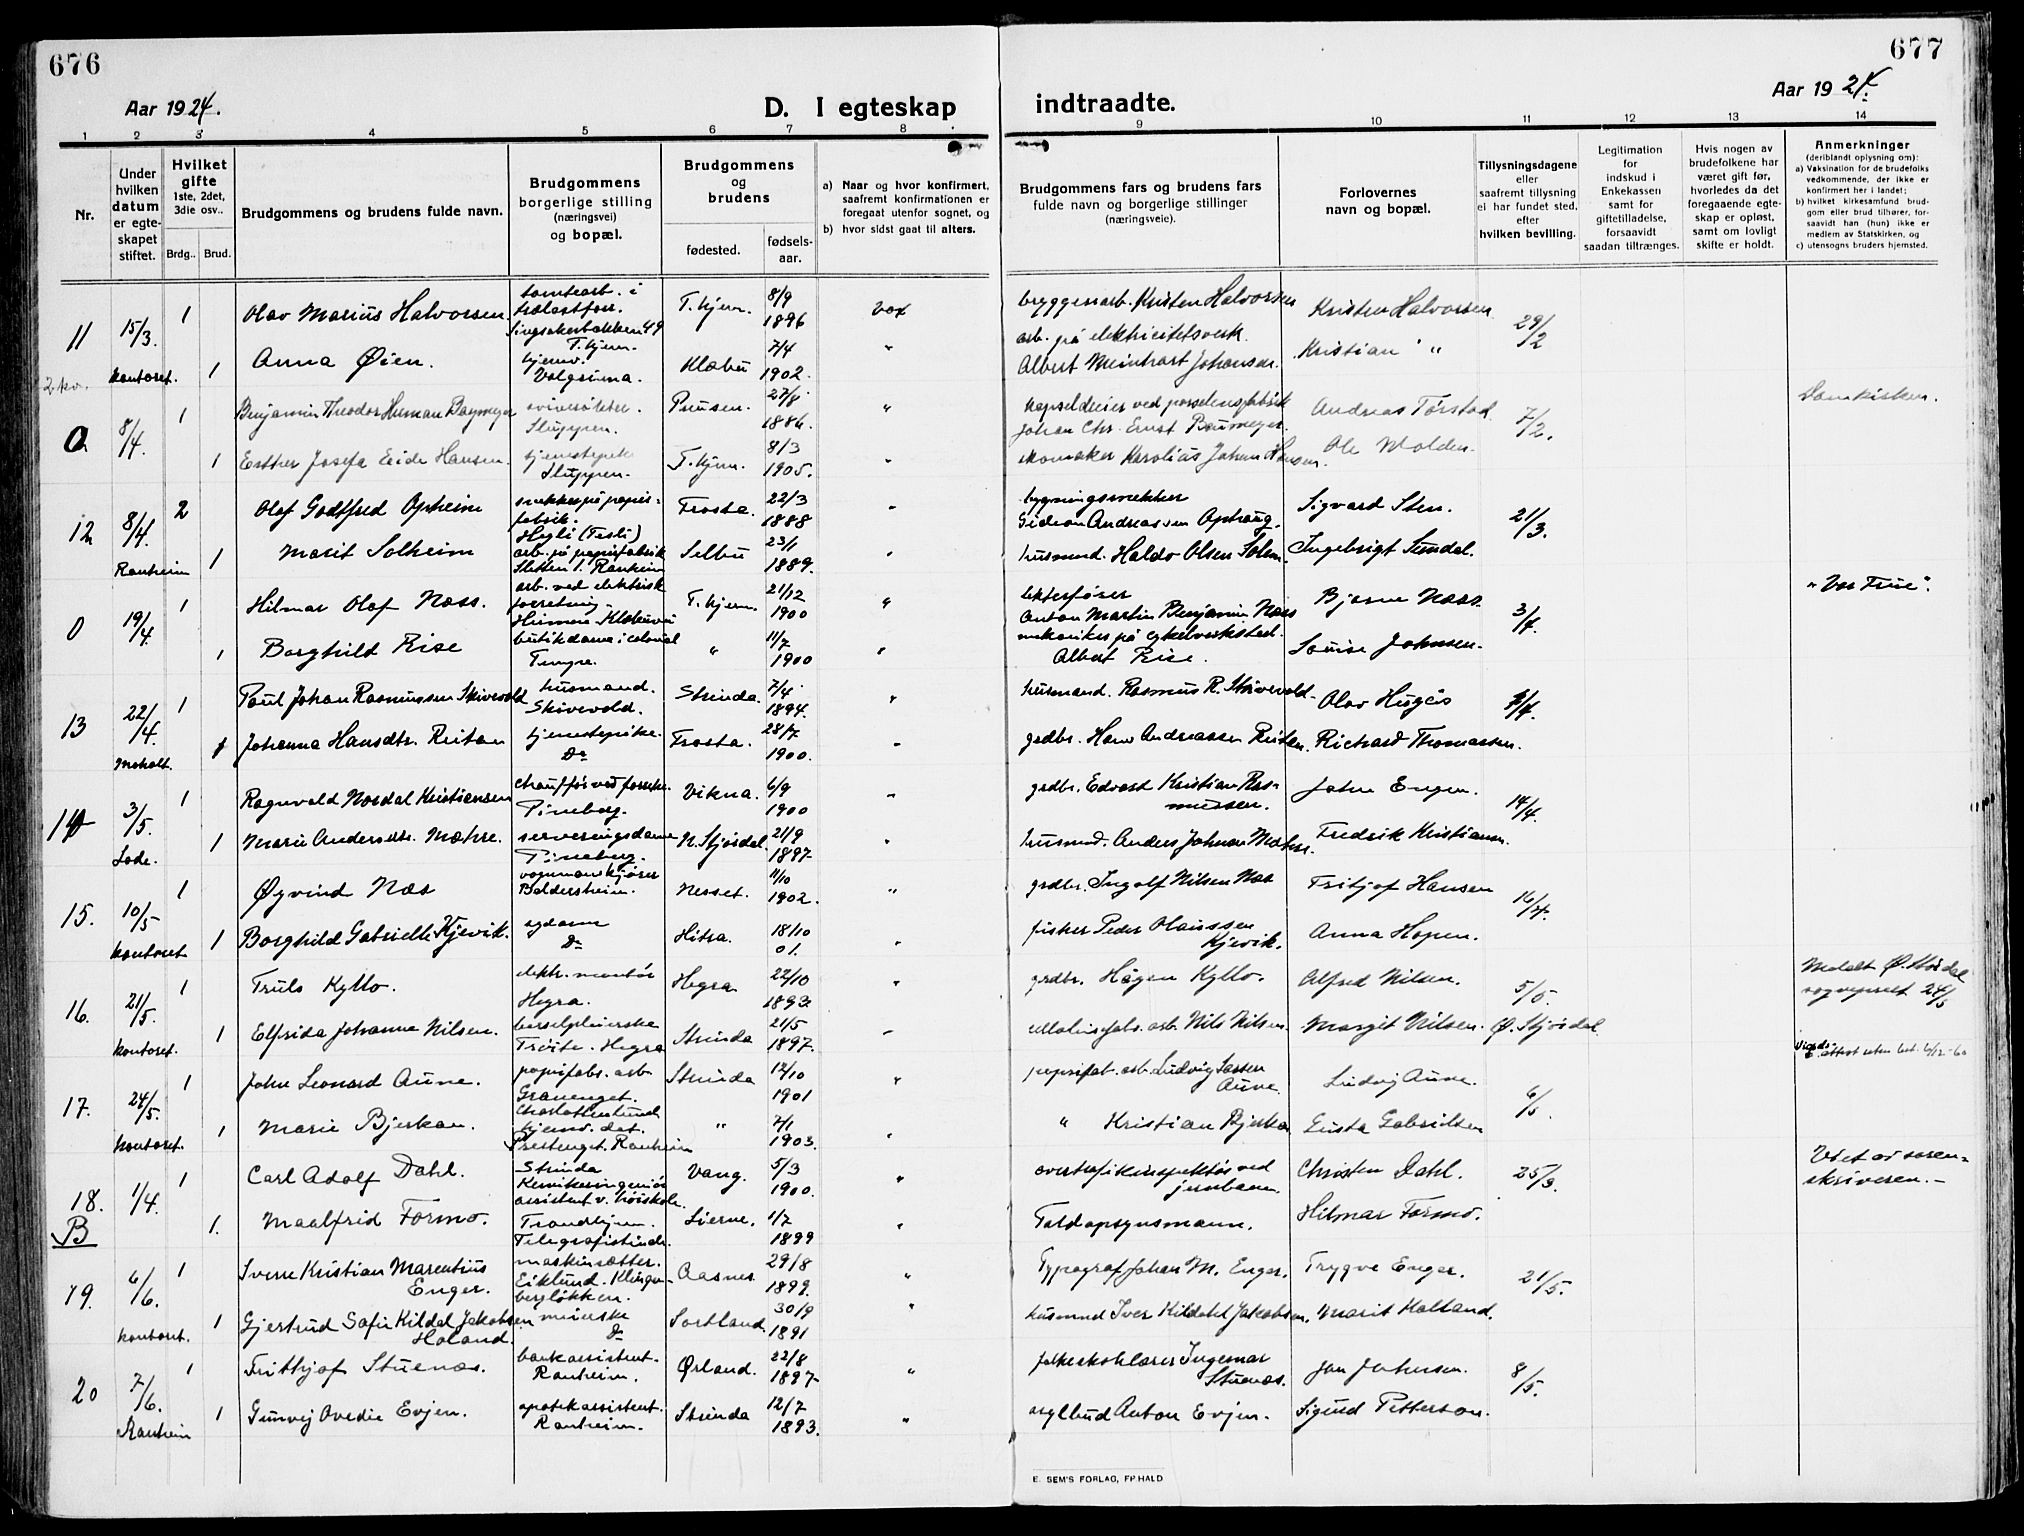 676
677
Aar 1924.
D. I egteskap
indtraadte.
Aar 1924.
1 2 3 4 5 6 7 8 9 10 11 12 13 14
Nr.
Under hvilken datum er egteskapet stiftet.
Hvilket gifte 1ste, 2det, 3die osv..
Brdg.. Brud.
Brudgommens og brudens fulde navn.
Brudgommens borgerlige stilling (næringsvei) og bopæl.
Brudgommens og brudens
fødested.
fødsels-aar.
a) Naar og hvor konfirmert, saafremt konfirmationen er foregaat utenfor sognet, og
b) hvor sidst gaat til alters.
Brudgommens fars og brudens fars fulde navn og borgerlige stillinger (næringsveie).
Forlovernes navn og bopæl.
Tillysningsdagene eller saafremt tillysning ei har fundet sted, efter hvilken bevilling.
Legitimation for indskud i Enkekassen samt for giftetilladelse, forsaavidt saadan tiltrænges.
Hvis nogen av brudefolkene har været gift før, hvorledes da det foregaaende egteskap er opløst, samt om lovligt skifte er holdt.
Anmerkninger
(deriblandt oplysning om):
a) Vaksination for de brudefolks vedkommende, der ikke er konfirmert her i landet;
b) hvilket kirkesamfund brudgom eller brud tilhører, forsaavidt han (hun) ikke er medlem av Statskirken, og
c) utensogns bruders hjemsted.
11 15/3. 1 Olav Marius Halvorsen. tomtearb. i trælastforr. Singsakerbakken 49 T.hjem. T.hjem. 8/9 1896 vax bryggeriarb. Kristen Halvorsen Kristen Halvorsen 29/2
kontoret. 1 Anna Øien. hjemv. Valgrinna. Klæbu 7/4 1902. " arb. på elektricitetsverk. Albert Meinhart Johansen. Kristian "
0 8/4. 1 Benjamin Theodor Herman Sluppen. 27/8 1886. " Johan Chr. Ernst Andreas 7/2. Domkirken.
1 Esther Josefa Eide Hansen. tjenestepike Sluppen. T.hjem. 8/3 1905. " skomaker Karolius Johan Hansen. Ole Molden.
12 8/4. 2 Olaf Godtfred Opheim snekker på papirfabrik. Frosta. 22/3 1888 " bygningssnekker Gideon Andreassen Sigvard Sten. 21/3.
Ranheim 1 Marit Solheim arb. på papirfabrik Ranheim Selbu 23/1 1889. " husmand. Haldo Olsen Solem. Ingebrigt Sundal.
0 19/4. 1 Hilmar Olaf Næss. arb. ved elektrisk forretning. T.hjem. 21/12 1900 " Anton Martin Benjamin Næss Bjarne Næss. 3/4. "Vor Frue".
1 Borghild Rise butikdame i colonial Tempe. " 11/7 1900 " mekaniker på cykelverksted. Albert Rise. Louise Johnsen.
13 22/4. 1 Paul Johan Rasmussen Skivevold husmand. Skivevold. Strinda. 7/4 1894. " husmand. Rasmus R. Skivevold. Olav 4/4.
Moholt. 1 Johanna Hansdtr. Reitan tjenestepike. Do Frosta. 28/7 1900. " grdbr. Hans Andreassen Reitan. Richard Thomassen.
14 3/5. 1 Ragnvald Nordal Kristiansen Vikna. 6/9 1900 " grdbr. Edvard Kristian Rasmussen. John Engen. 14/4.
Lade. 1 Marie Andersdtr. Mæhre. serveringsdame N. Stjørdal. 21/9 1897. " husmd. Anders Johnsen Mæhre. Fredrik Kristiansen.
15. 10/5 1 Øyvind Næs vognmandskjører Baldersheim. Nesset. 11/10 1902. " grdbr. Ingolf Nilsen Næs Fritjof Hansen 16/4.
kontoret 1 Borghild Gabrielle Kjevik. Do Hitra. 18/10 01. " fisker Peder Olaussen Kjevik. Anna Hopen.
16. 21/5. 1 Truls Kyllo. elektr. montør Hegra. Hegra 22/10 1893. " grdbr. Hågen Kyllo. Alfred Nilsen. 5/5. Meldt Ø. Stjørdal sogneprest 24/5
kontoret. 1 Elfrida Johanne Nilsen. barselpleierske Hegra Strinda 21/5 1897. " arb. Nils Nilsen. Margit Nilsen. Ø. Stjørdal.
17. 24/5. 1 John Leonard Aune. papirfabr. arb. Strinda 12/10 1901 " papirfab. arb. Ludvig Aune Ludvig Aune. 6/5. attest
kontoret. 1 Marie Bjerkan. hjemv. det. Prestenget. Ranheim " 7/1 1903. " " Kristian Bjerkan Gusta Gabrielsen
18. B 1/4. 1 Carl Adolf Dahl. Strinda Kemikeringeniør assistent v. høiskolen. Vang. 5/3 1900. " overtrafikinspektør ved jernbanen. Christen Dahl. 25/3. Viet av sorenskriveren.
1. Maalfrid Formo. Trondhjem. Lierne. 1/7 1899 " Toldopsynsmann. Hilmar Formo.
19. 6/6. 1 Sverre Kristian Marentius Enger. maskinsætter. Eiklund. Aasnes 29/8 1899. " Typograf Johan M. Enger. Trygve Enger. 21/5.
kontoret. 1 Gjertrud Sofie Kildal Jakobsen Holand. Do Sortland. 30/9 1891 " husmand Iver Kildahl Jakobsen. Marit Holtand.
20 7/6. 1 Frithjof Stuenæs. bankassistent. Ranheim. Ørland. 22/8 1897. " folkeskolelærer Ingemar Stuenæs. Jon Johnsen. 8/5.
Ranheim 1 Gunvej Ovedie Evjen. apotekassistent. Ranheim. Strinda 12/7 1893. " asylbud Anton Evjen. Sigurd Petterson.
E. SEM'S FORLAG, FR.HALD